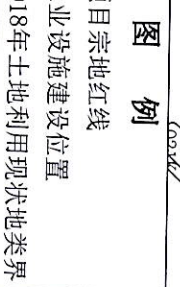 图 例
目宗地红线
业设施建设位置
018年土地利用现状地类界